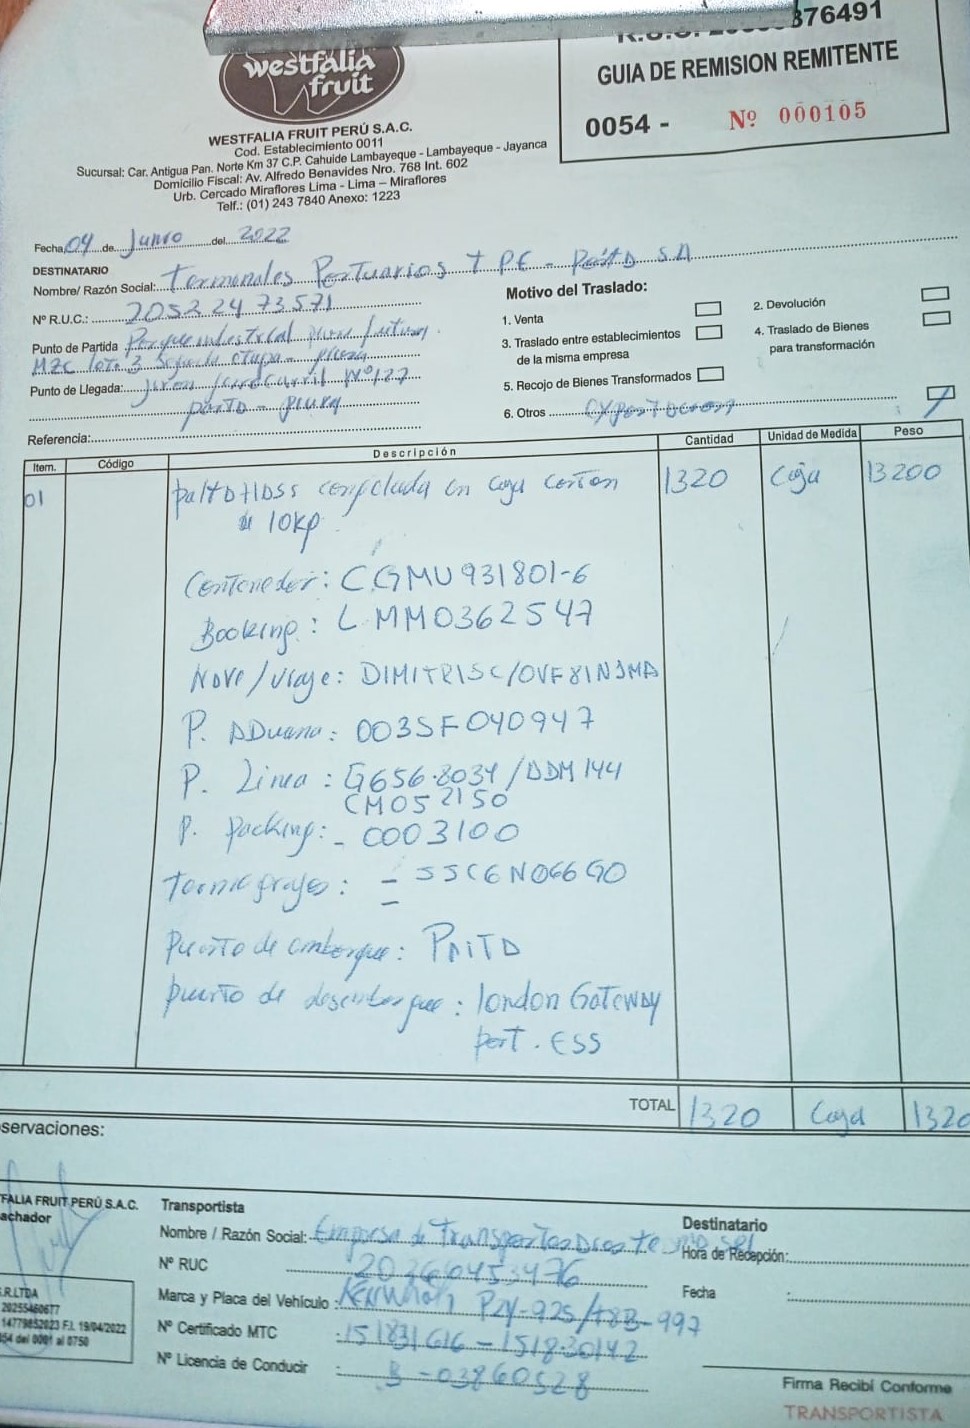 westfalia
fruit
WESTFALIA FRUIT PERÚ S.A.C.
Cod. Establecimiento 0011
Sucursal: Car. Antigua Pan. Norte Km 37 C.P. Cahuide Lambayeque - Lambayeque - Jayanca
Domicilio Fiscal: Av. Alfredo Benavides Nro. 768 Int. 602
Urb. Cercado Miraflores Lima - Lima – Miraflores
Telf.: (01) 243 7840 Anexo: 1223
376491
GUIA DE REMISION REMITENTE
0054 - Nº 000105
Fecha 04 de Junio del 2022
DESTINATARIO
Nombre/ Razón Social: Terminales Portuarios PE - SA
Nº R.U.C.: 20522473571
Punto de Partida
MZC lote 3 Segunda etapa -
Punto de Llegada: Nº 127
Referencia:
Motivo del Traslado:
1. Venta
2. Devolución
3. Traslado entre establecimientos
de la misma empresa
4. Traslado de Bienes
para transformación
5. Recojo de Bienes Transformados
6. Otros
Item. Código Descripción Cantidad Unidad de Medida Peso
01 en caja 1320 Caja 13200
10kp
Contenedor: CGMU 931801-6
Booking: LMM0362547
Nave/Viaje: DIMITRISC/0VF81N3MA
P. ADuana: 003SF040947
P. Linea: G656-8034/DDM144
CM052150
P. Packing: - 0003100
SSCGN06690
Puerto de embarque: PAITA
puerto de desembarque: london GateWay
port. ESS
TOTAL 1320 Caja 1320
servaciones:
FALIA FRUIT PERÚ S.A.C.
achador
Transportista
Nombre / Razón Social: Empresa de Transportes
Nº RUC 20360453476
Marca y Placa del Vehículo: P2Y-925/A8B-997
Nº Certificado MTC: 151831616 - 151830142
Nº Licencia de Conducir: B-03860528
Destinatario
Hora de Recepción:
Fecha :
Firma Recibí Conforme
TRANSPORTISTA
.R.LTDA
20255460677
14779852023 F.I. 19/04/2022
054 del 0001 al 0750